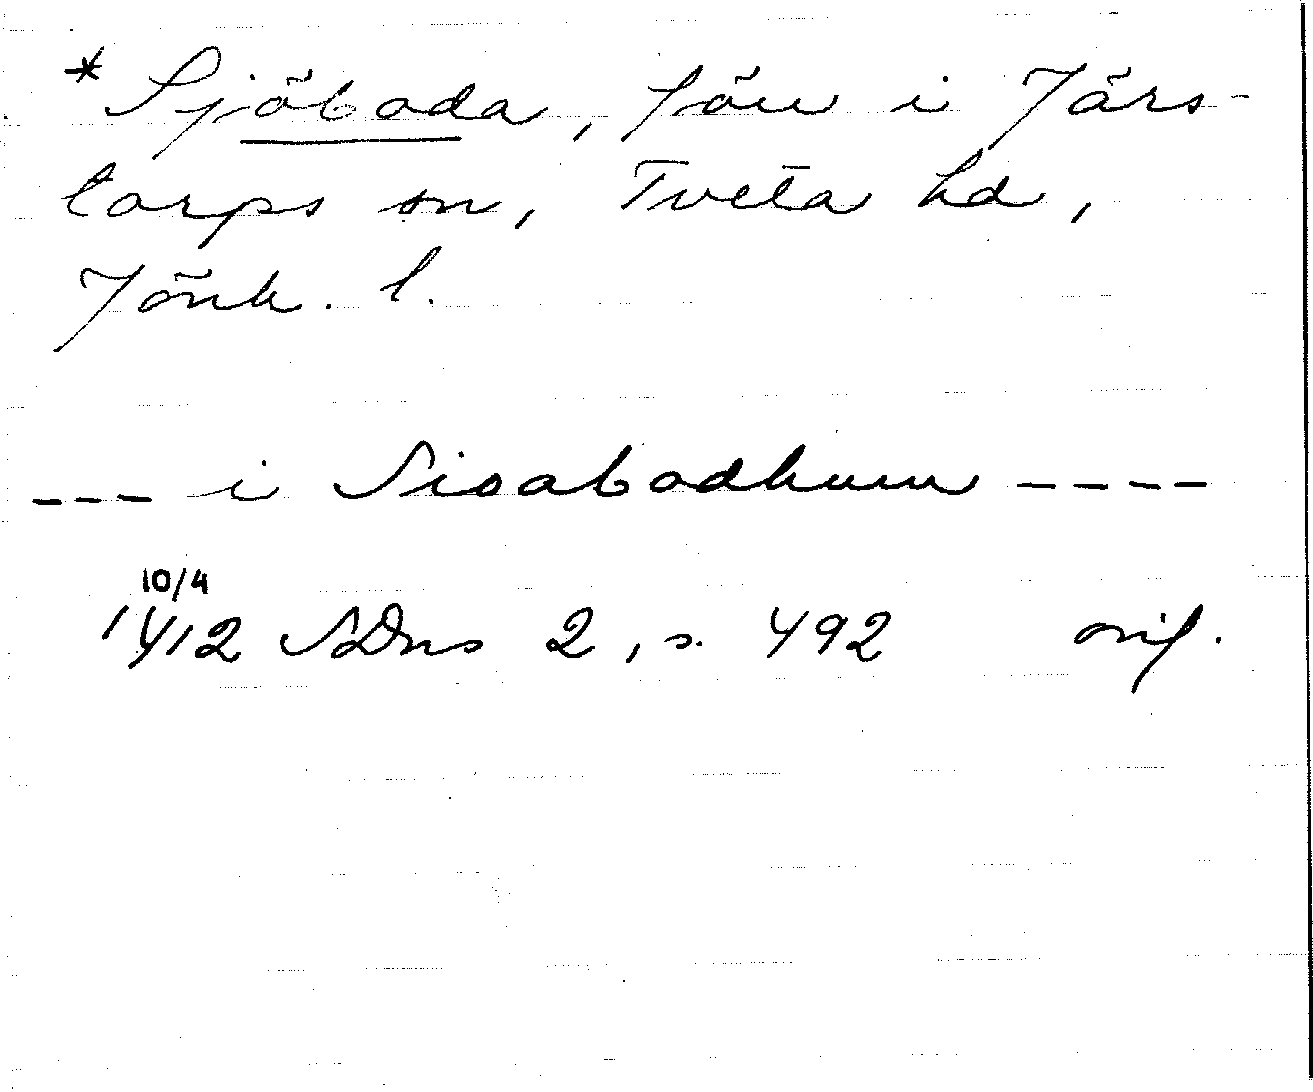 * Sjöboda, förv i Järs-
torps sn, Tveta hd,
Jönk. l.
--- i Sioabodhum ----
10/4
1412 SDns 2, s. 492 orig.